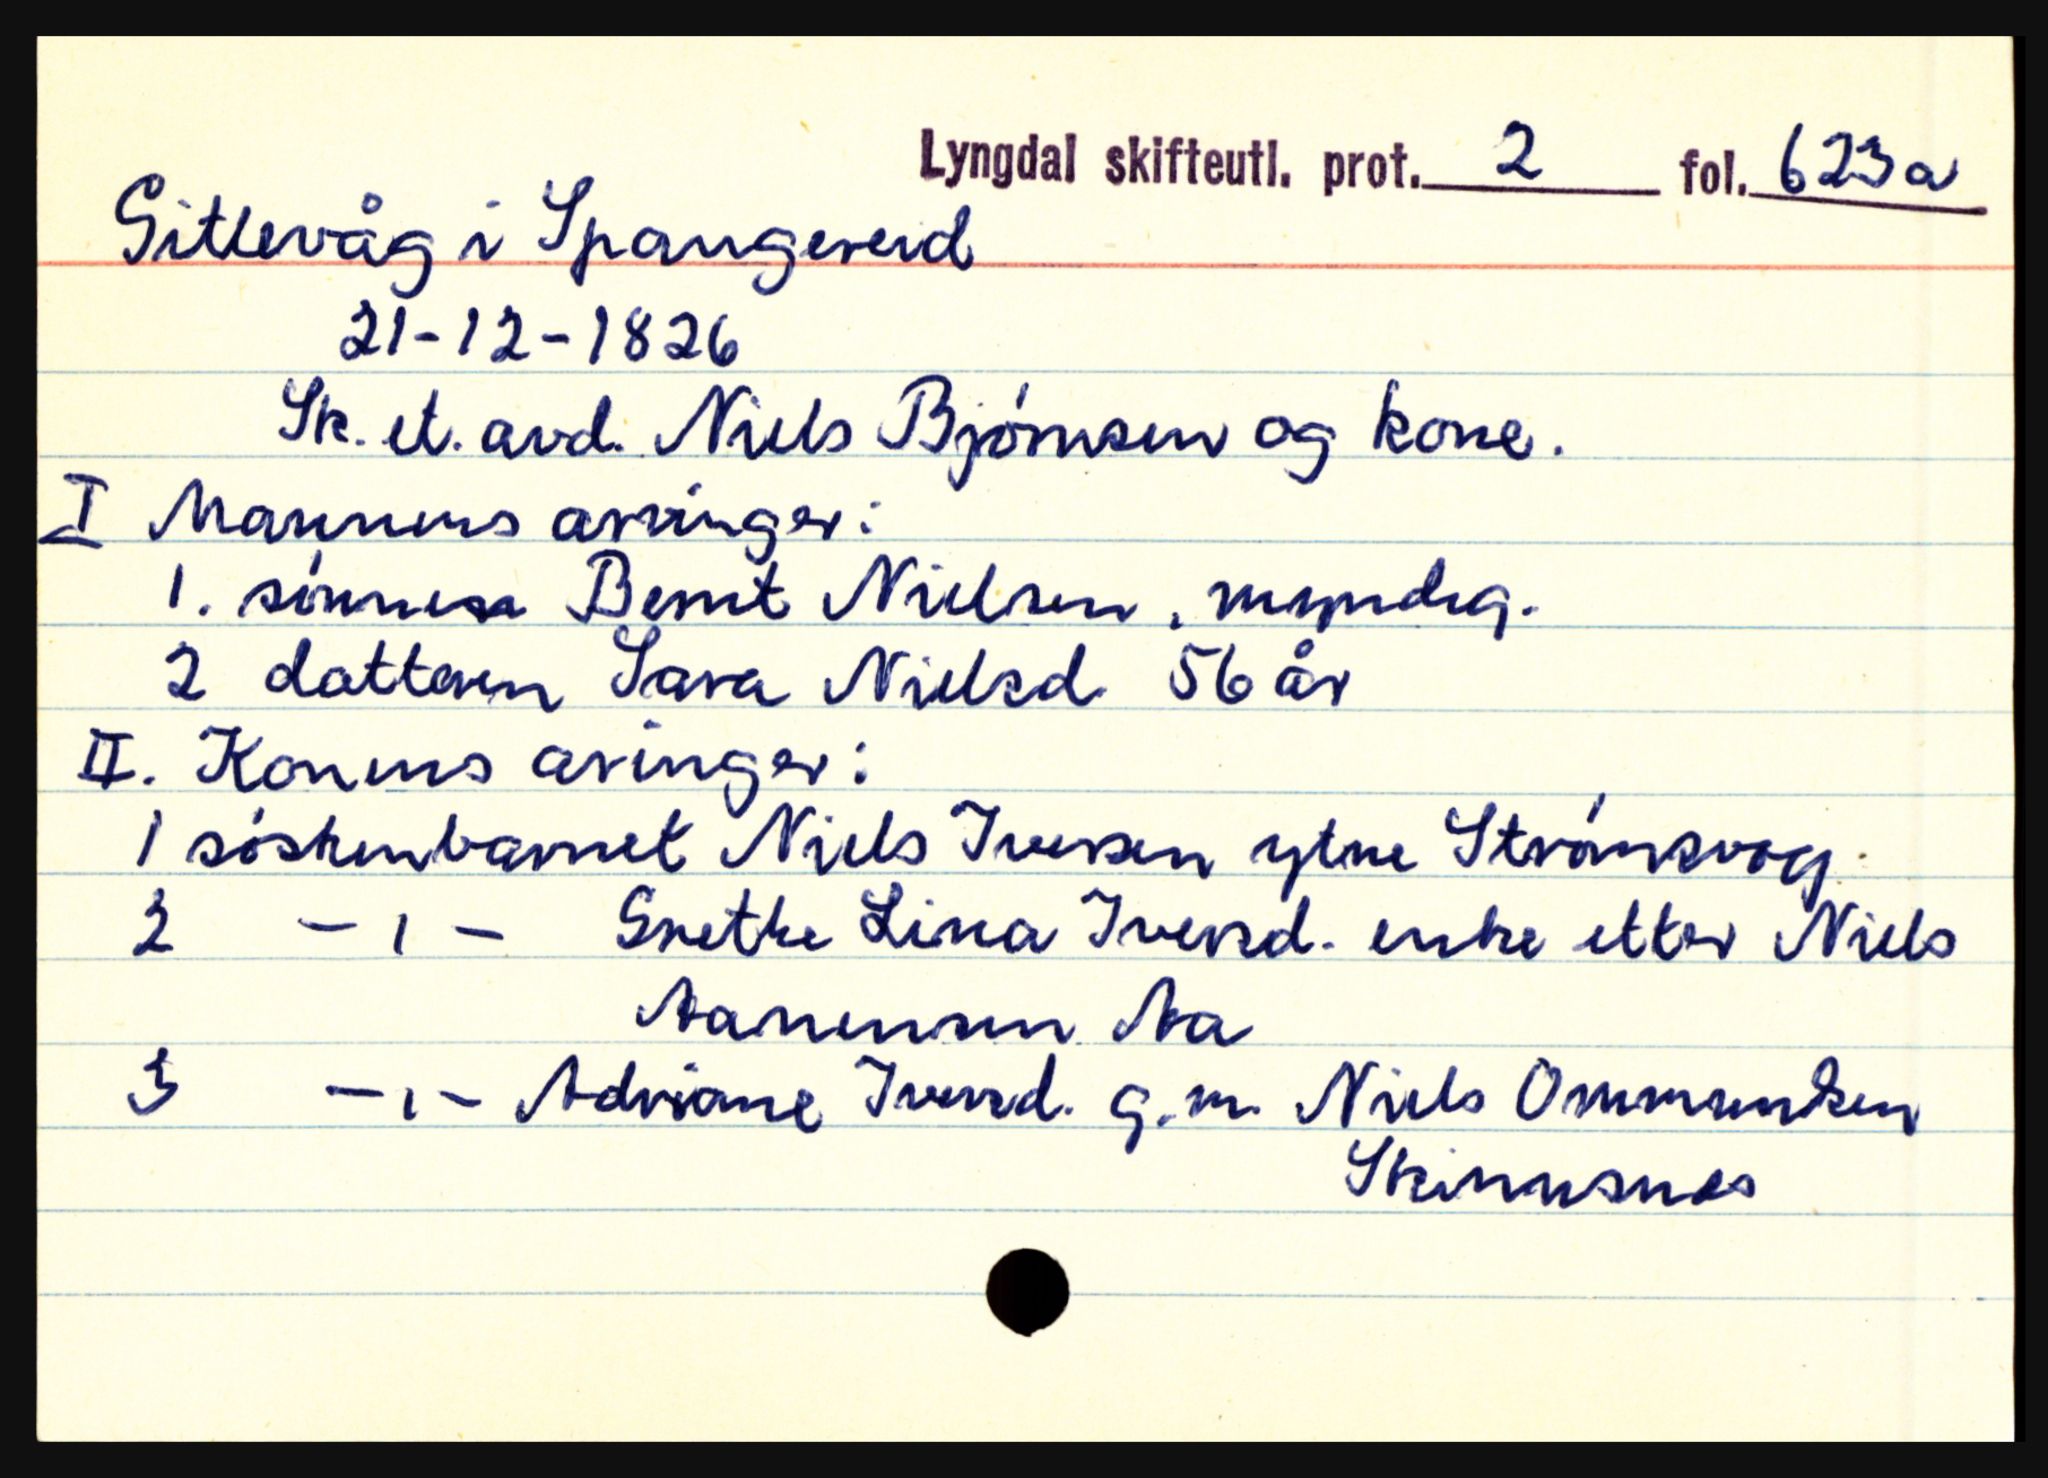 Lyngdal skifteutl. prot. 2 fol. 623a
Gitlevåg i Spangereid
21-12-1826
Sk. et. avd. Niels Bjørnsen og kone.
I Mannens arvinger:
1. sønnen Bernt Nielsen, myndig.
2 datteren Sara Nielsd. 56 år
II. Konens aringer:
1 søskenbarnet Niels Iversen ytre Strømsvog.
2 -ı- Grethe Lina Iversd. enke etter Niels
Aanensen Aa
3 -ı- Adriane Iversd. g.m. Niels Ommundsen
Skinnsnes